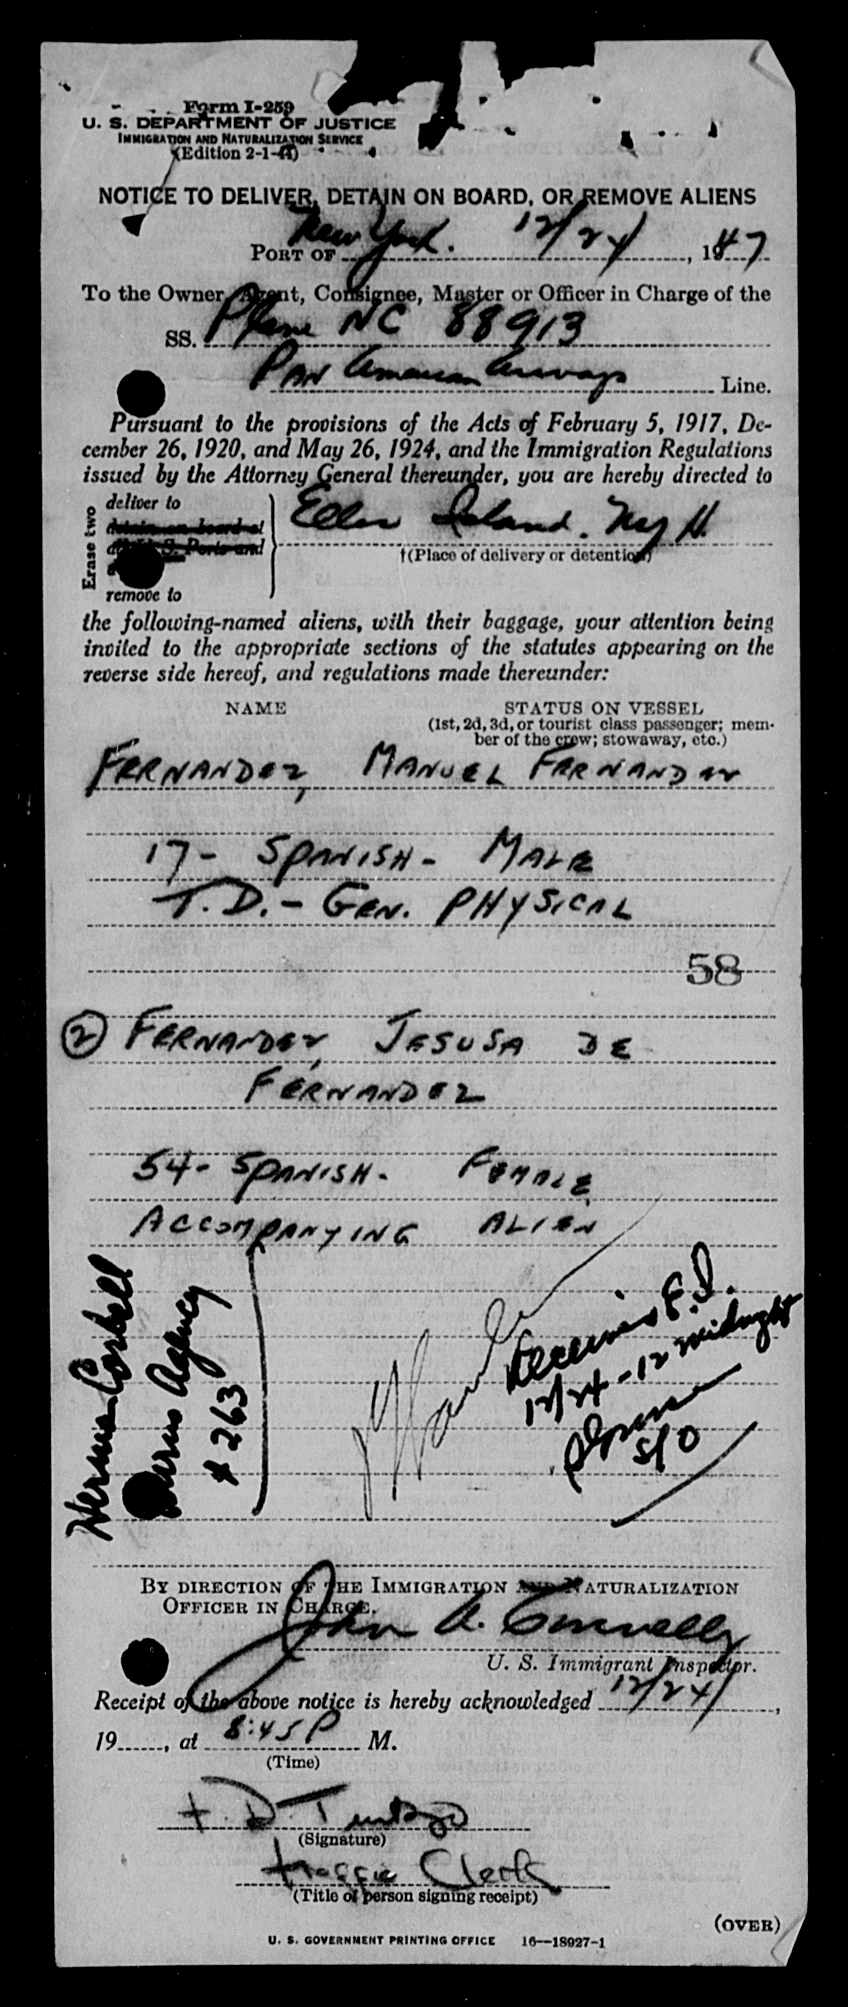 Form I-259
U. S. DEPARTMENT OF JUSTICE
IMMIGRATION AND NATURALIZATION SERVICE
(Edition 2-1-41)
NOTICE TO DELIVER, DETAIN ON BOARD, OR REMOVE ALIENS
PORT OF New York. 12/24/, 1947
To the Owner, Agent, Consignee, Master or Officer in Charge of the
SS. Plane NC 88913
Pan American Airways Line.
Pursuant to the provisions of the Acts of February 5, 1917, De-
cember 26, 1920, and May 26, 1924, and the Immigration Regulations
issued by the Attorney General thereunder, you are hereby directed to
Erase two
deliver to
detain on board at
U. S. Ports and
remove to
Ellis Island. NY H.
†(Place of delivery or detention)
the following-named aliens, with their baggage, your attention being
invited to the appropriate sections of the statutes appearing on the
reverse side hereof, and regulations made thereunder:
NAME STATUS ON VESSEL
(1st, 2d, 3d, or tourist class passenger; mem-
ber of the crew; stowaway, etc.)
FERNANDEZ, MANUEL FERNANDEZ
17- SPANISH- MALE
T.D.- GEN. PHYSICAL
58
② FERNANDEZ, JESUSA DE
FERNANDEZ
54- SPANISH- FEMALE
ACCOMPANYING ALIEN
Agency
# 263
Received E.I.
12/24-12 midnight
S/O
BY DIRECTION OF THE IMMIGRATION AND NATURALIZATION
OFFICER IN CHARGE.
John A. Connelly
U. S. Immigrant Inspector.
Receipt of the above notice is hereby acknowledged 12/24/,
19......, at 8:45 P M.
(Time)
(Signature)
Traffic Clerk
(Title of person signing receipt)
(OVER)
U. S. GOVERNMENT PRINTING OFFICE 16—18927-1